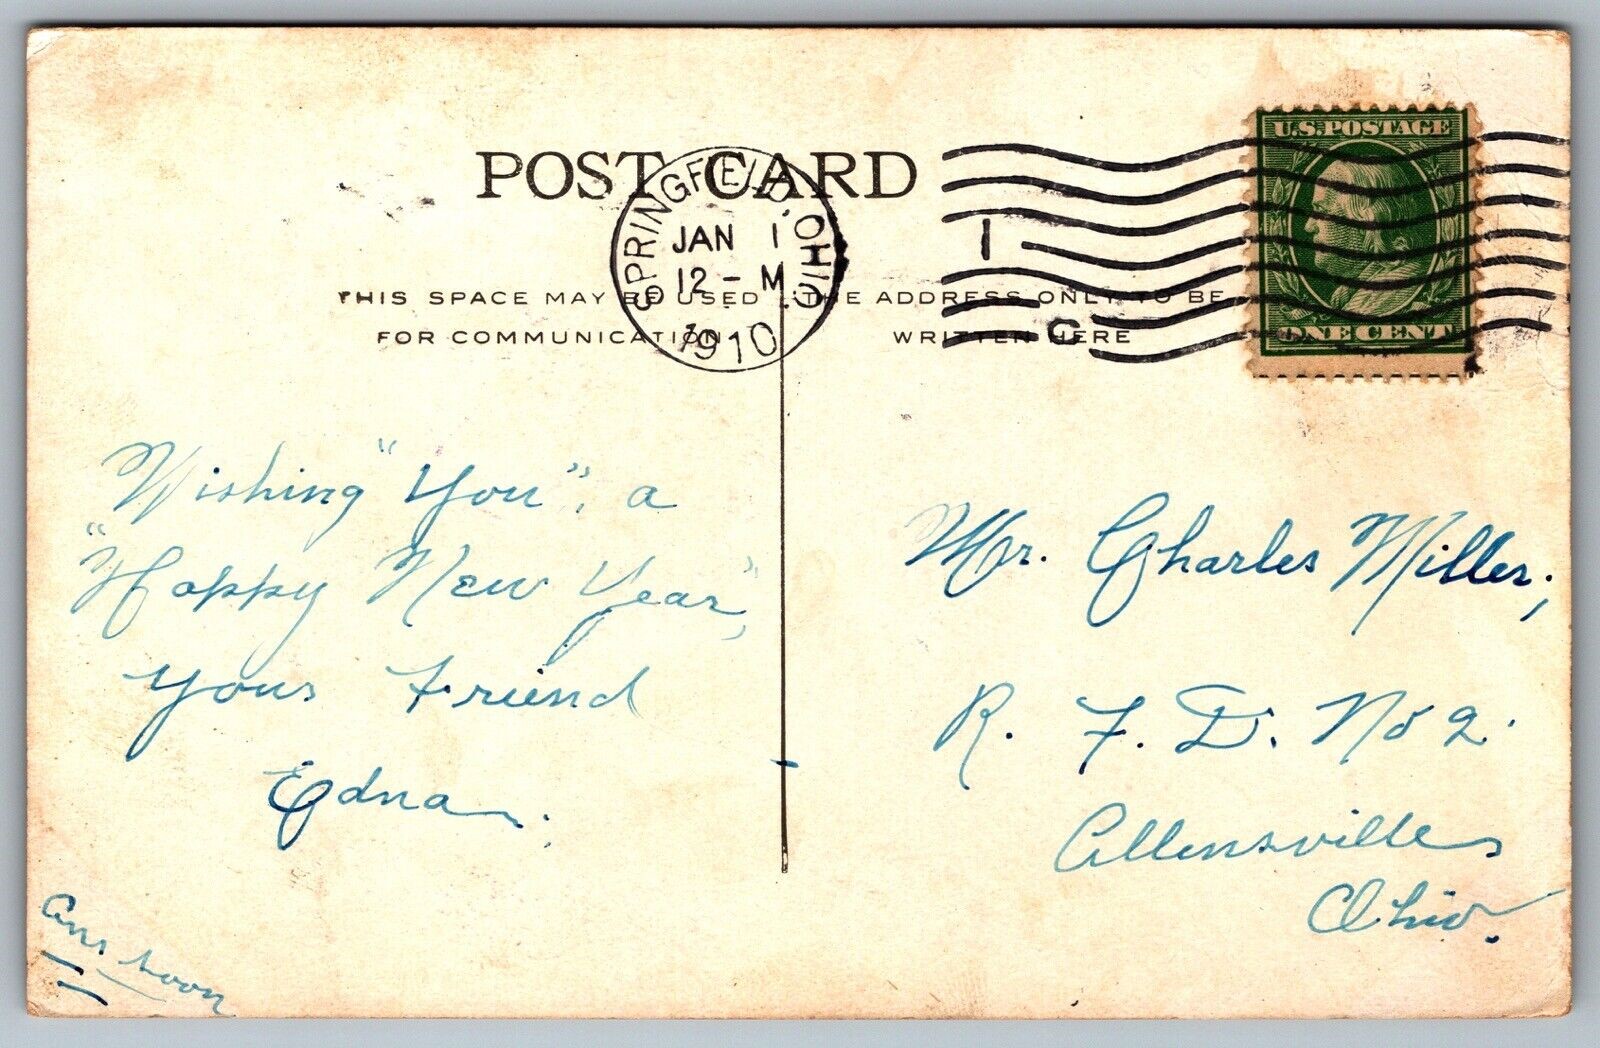 POST CARD
SPRINGFIELD, OHIO.
JAN 1
12-M
1910
1
C
U.S. POSTAGE
ONE CENT
THIS SPACE MAY BE USED
FOR COMMUNICATION
THE ADDRESS ONLY TO BE
WRITTEN HERE
Wishing "You". a
"Happy New Year",
Your Friend
Edna.
Ans. soon
Mr. Charles Miller,
R. F. D. No 2.
Allensville
Ohio.